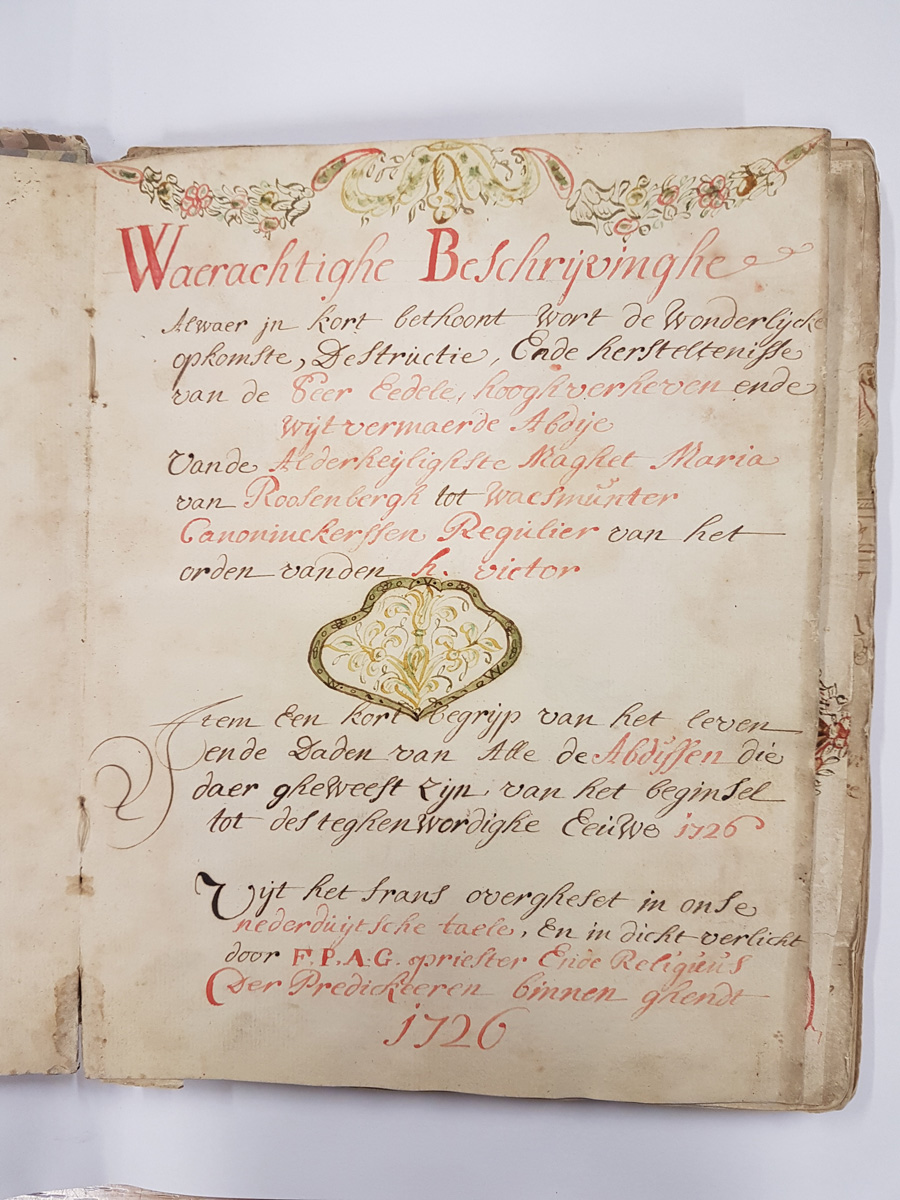 Waerachtighe Beschrijvinghe
Alwaer jn kort bethoont wort de Wonderlijcke
opkomste, Destructie, Ende hersteltenisse
van de Seer Eedele, hooghverheven ende
Wijt vermaerde Abdije
Vande Alderheijlighste Maghet Maria
van Roosenbergh tot Waesmünter
Canoninckerssen Regulier van het
orden vanden h. victor
Item Een kort begrijp van het leven
ende Daden van Alle de Abdissen die
daer gheweest Zijn van het beginsel
tot desteghenwordighe Eeuwe 1726
Uijt het frans overgheset in onse
nederduijtsche taele, En in dicht verlicht
door F. P. A. G. priester Ende Religuus
Der Predickeeren binnen ghendt
1726